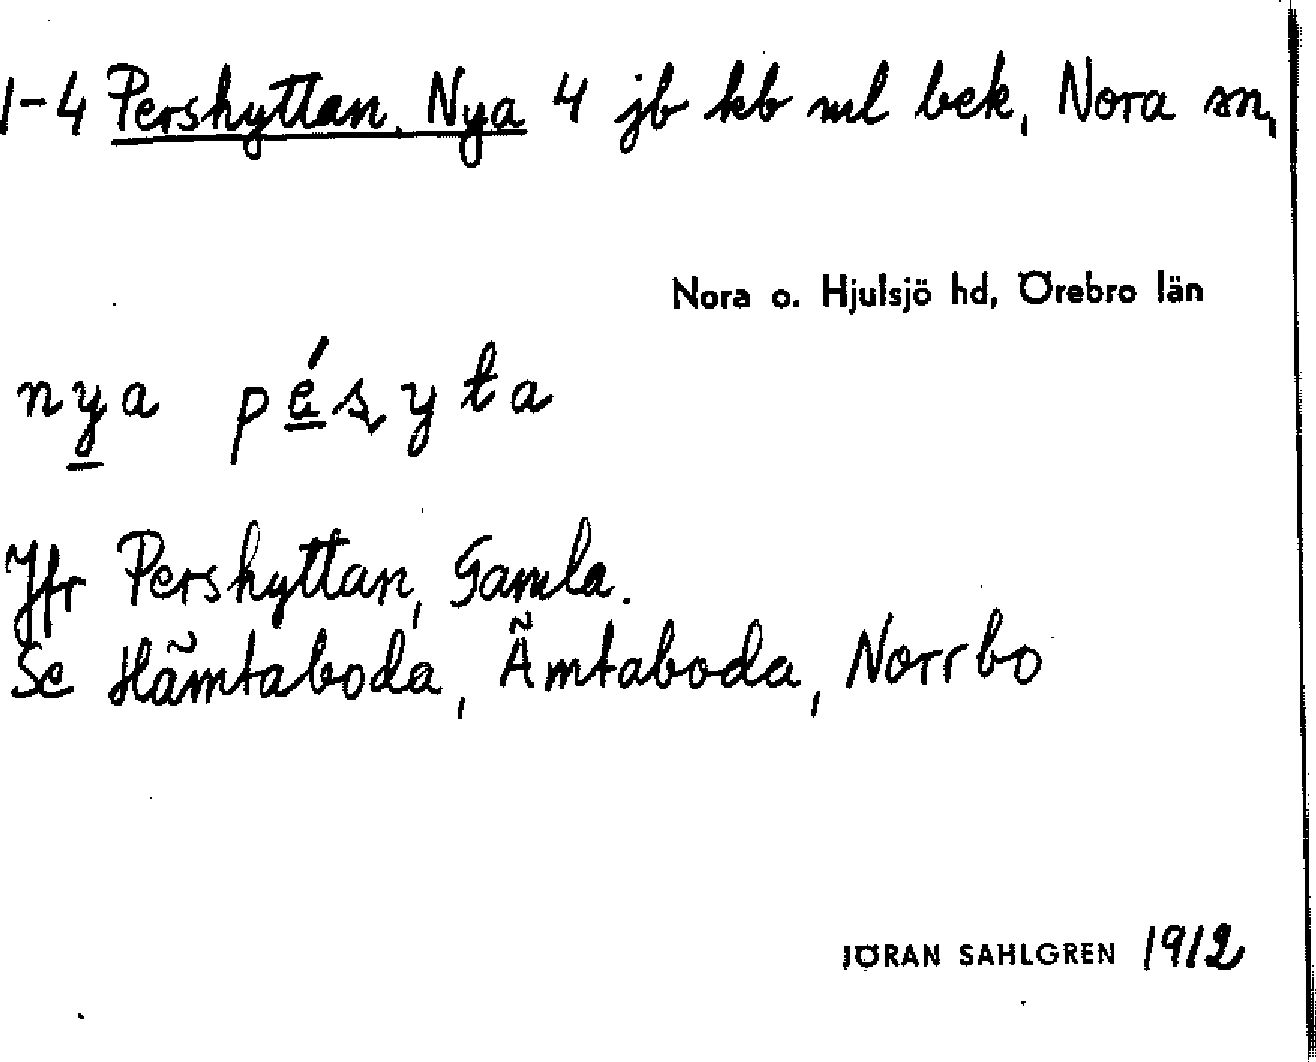 1-4 Pershyttan, Nya 4 jb kb ml bek, Nora sn,
Nora o. Hjulsjö hd, Örebro län
nya pésyta
Jfr Pershyttan, Gamla.
Se Hämtaboda, Ämtaboda, Norrbo
JÖRAN SAHLGREN 1912